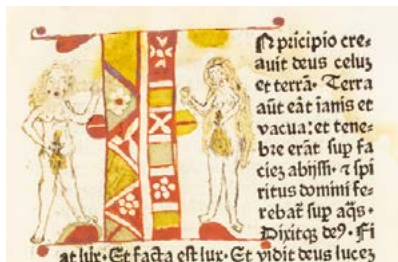 N pricipio cre⸗
auit deus celuʒ
et terrā· Terra
aūt eāt ianis et
vacua: et tene⸗
bre erāt sup fa
cieʒ abijssi· ⁊ spi
ritus domini fe⸗
rebat̄ sup aq̄s·
Dixitqʒ de9· Fi
at lux· Et facta est lux· Et vidit deus luceʒ